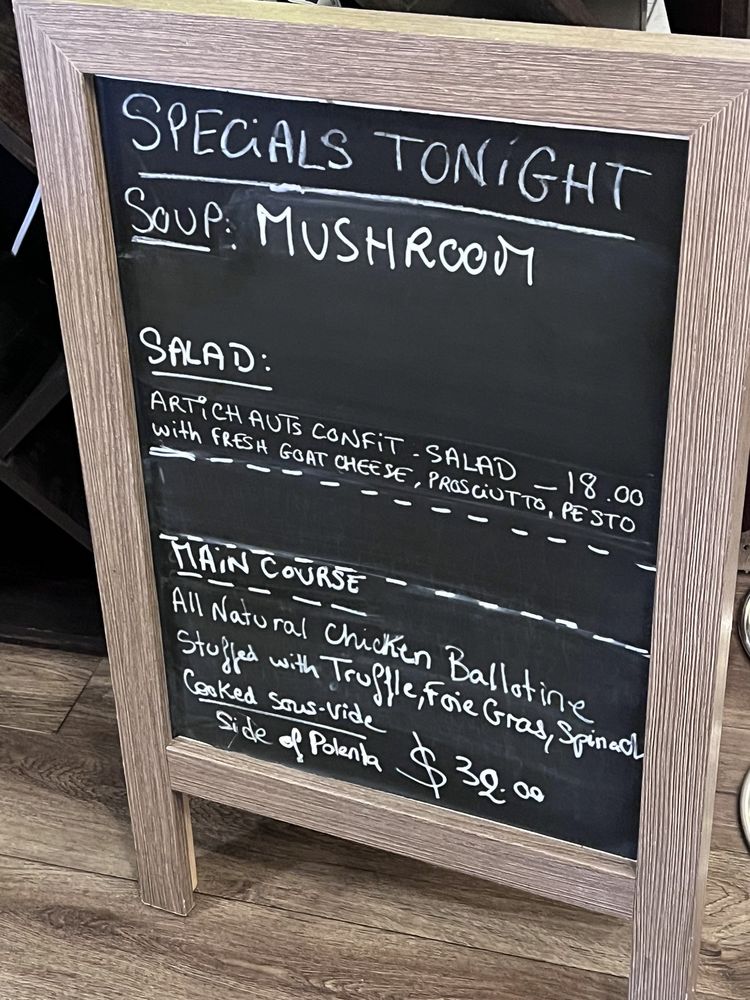 SPECiALS TONiGHT
SOUP: MUSHROOM
SALAD:
ARTiCHAUTS CONFiT - SALAD — 18.00
with FRESH GOAT CHEESE, PROSCiUTTO, PESTO
MAiN COURSE
All Natural Chicken Ballotine
Stuffed with Truffle, Foie Gras, Spinach
Cooked Sous-Vide
Side of Polenta $ 32.00